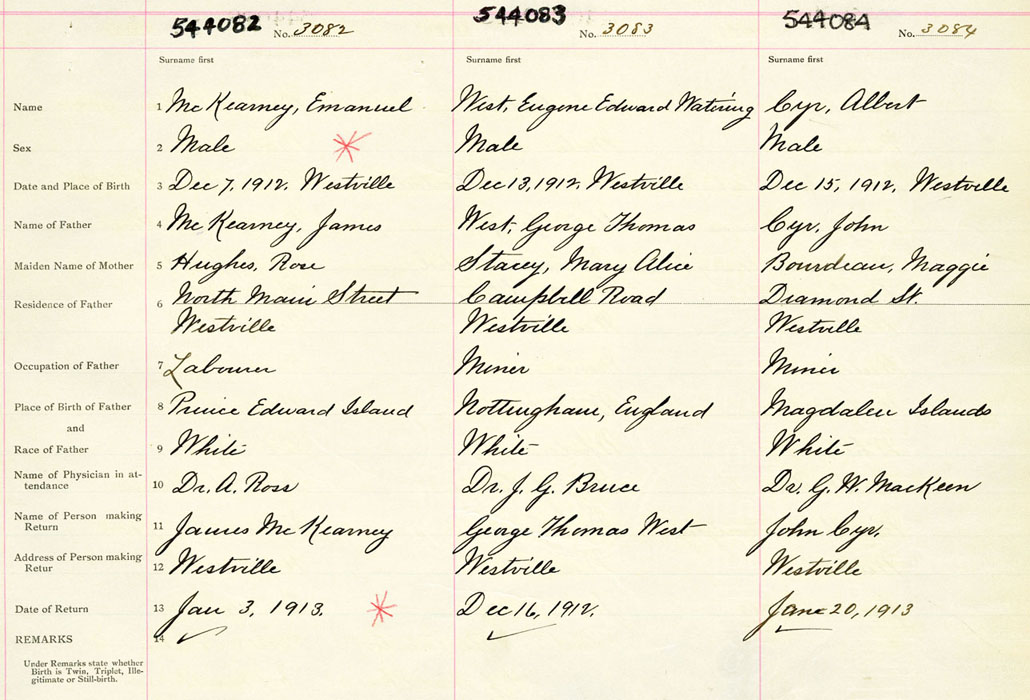 544082 No. 3082 544083 No. 3083 544084 No. 3084
Surname first Surname first Surname first
Name 1 McKearney, Emanuel West, Eugene Edward Watering Cyr, Albert
Sex 2 Male Male Male
Date and Place of Birth 3 Dec 7, 1912. Westville Dec 13, 1912. Westville Dec 15, 1912, Westville
Name of Father 4 McKearney, James West, George Thomas Cyr, John
Maiden Name of Mother 5 Hughes, Rose Stacey, Mary Alice Bourdeau, Maggie
Residence of Father 6 North Main Street Campbell Road Diamond St.
Westville Westville Westville
Occupation of Father 7 Labourer Miner Miner
Place of Birth of Father 8 Prince Edward Island Nottingham, England Magdalen Islands
and
Race of Father 9 White White White
Name of Physician in at-
tendance 10 Dr. A. Ross Dr. J. G. Bruce Dr. G. W. MacKeen
Name of Person making
Return 11 James McKearney George Thomas West John Cyr.
Address of Person making
Retur 12 Westville Westville Westville
Date of Return 13 Jan 3, 1913. Dec 16, 1912. June 20, 1913
REMARKS 14
Under Remarks state whether
Birth is Twin, Triplet, Ille-
gitimate or Still-birth.